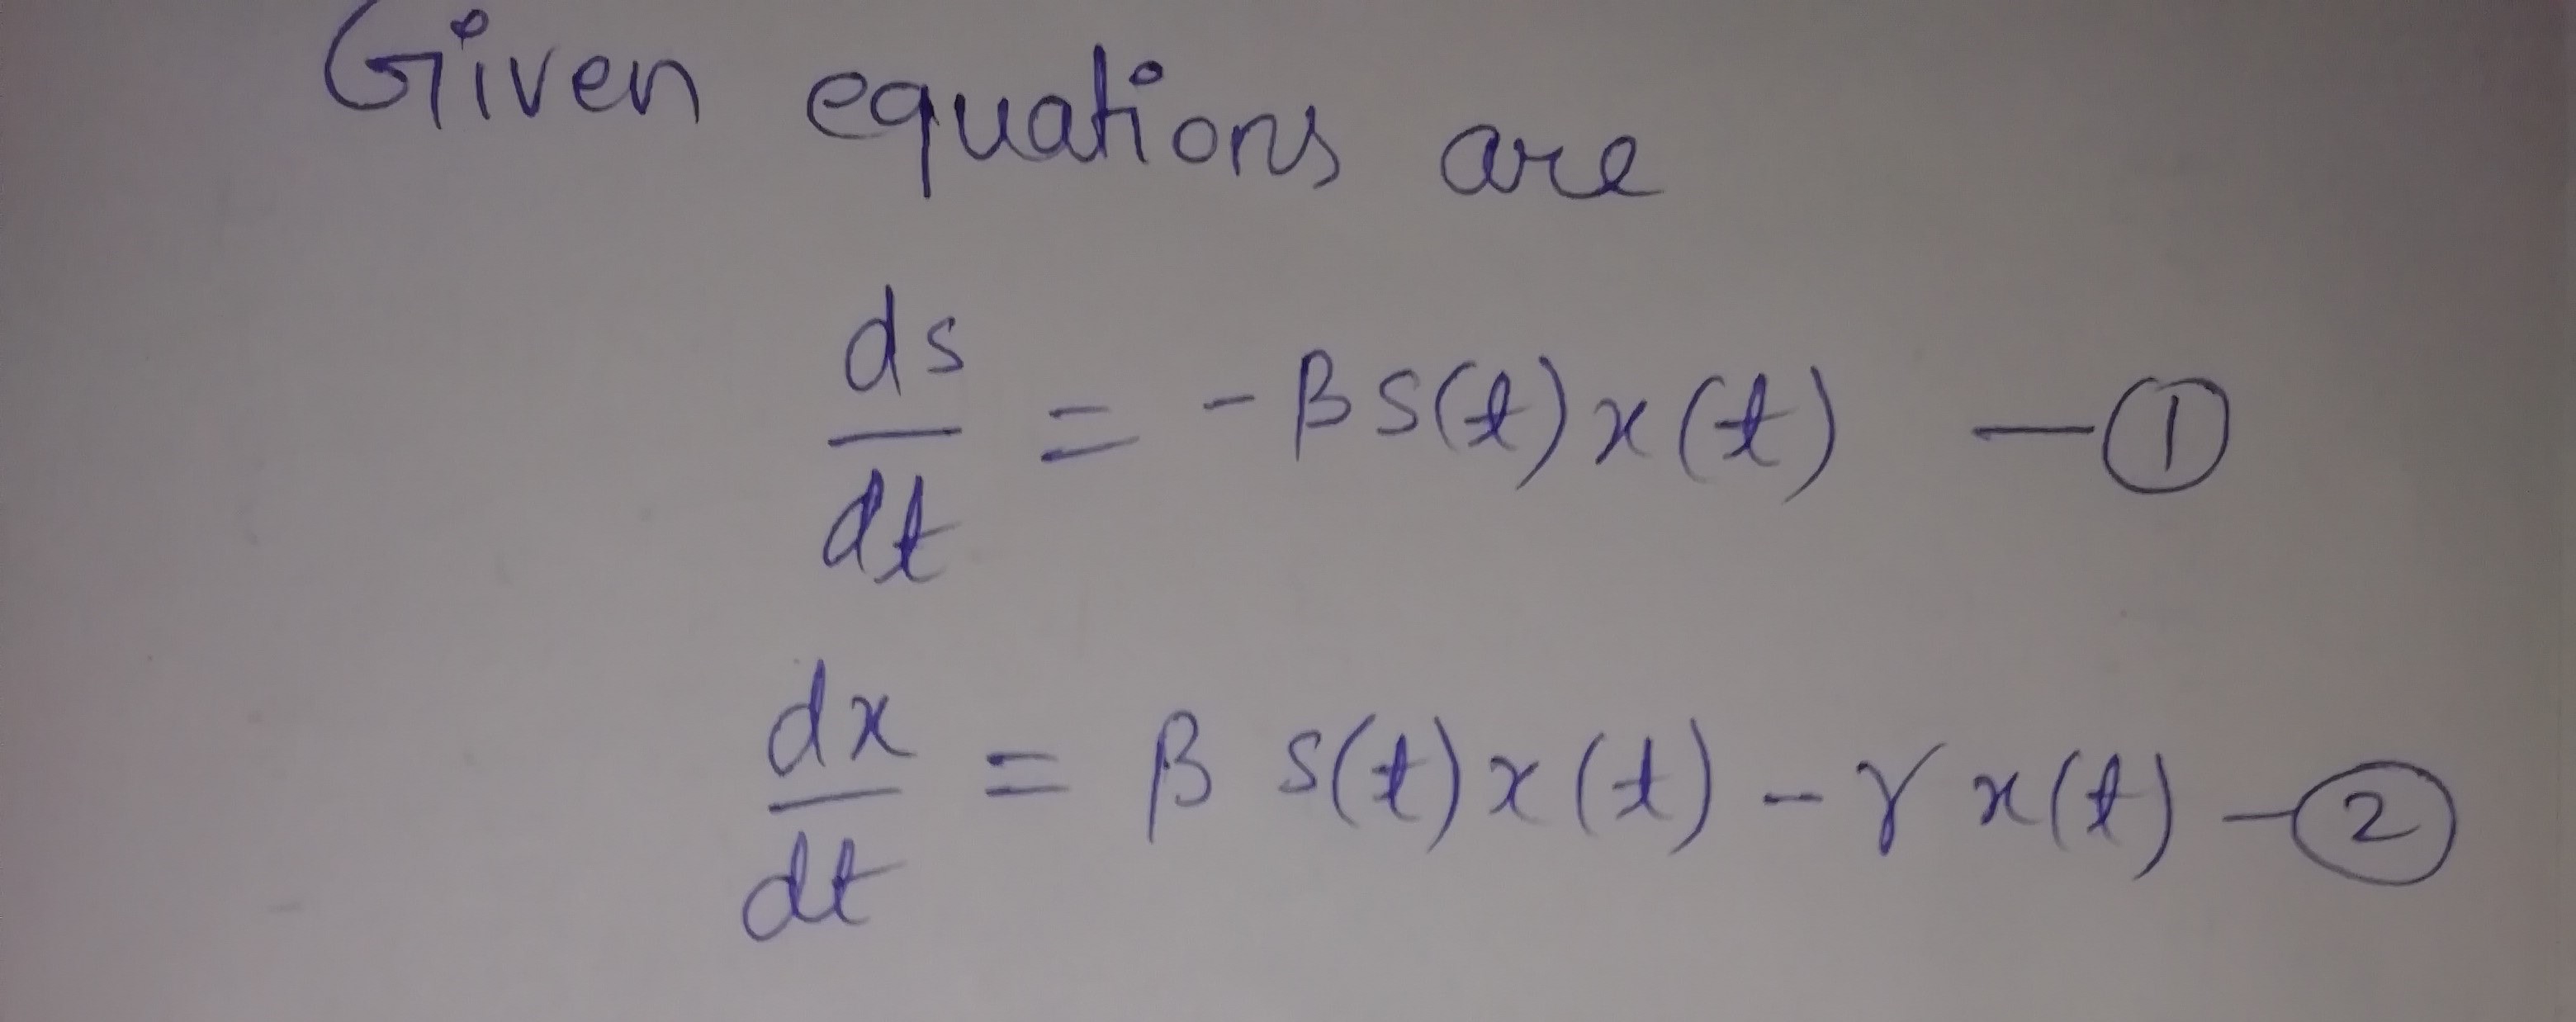 Given equations are
ds/dt = - β s(t) x(t) — ①
dx/dt = β s(t) x(t) - γ x(t) - ②